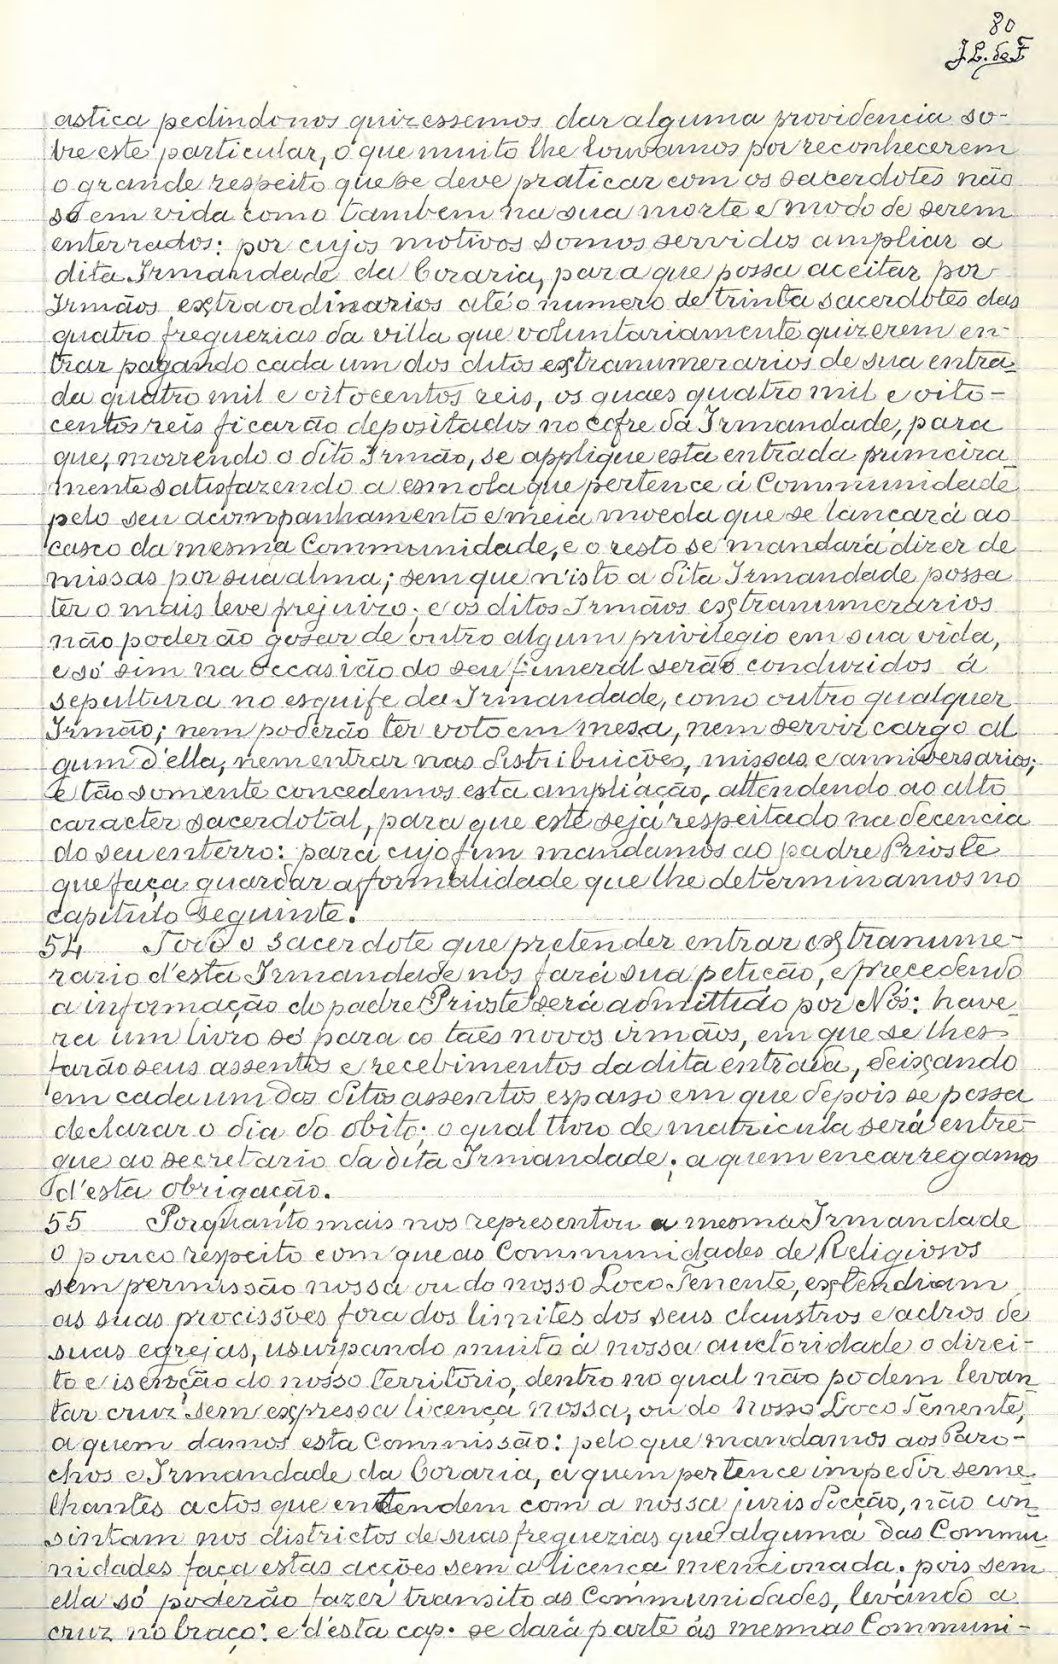 80
J.L. de F
astica pedindo nos quizessemos dar alguma providencia so-
bre este particular, o que muito lhe louvamos por reconhecerem
o grande respeito que se deve praticar com os sacerdotes não
só em vida como tambem na sua morte e modo de serem
enterrados: por cujos motivos somos servidos ampliar a
dita Irmandade da Coraria, para que possa aceitar por
Irmãos extraordinarios até o numero de trinta sacerdotes das
quatro freguezias da villa que voluntariamente quizerem en-
trar pagando cada um dos ditos extranumerarios de sua entra-
da quatro mil e oitocentos reis, os quaes quatro mil e oito-
centos reis ficarão depositados no cofre da Irmandade, para
que, morrendo o dito Irmão, se applique esta entrada primeira
mente satisfazendo a esmola que pertence á Communidade
pelo seu acompanhamento e meia moeda que se lançará ao
casco da mesma Communidade, e o resto se mandará dizer de
missas por sua alma; sem que n'isto a dita Irmandade possa
ter o mais leve prejuizo; e os ditos Irmãos extranumerarios
não poderão gosar de outro algum privilegio em sua vida,
e só sim na occasião do seu funeral serão conduzidos á
sepultura no esquife da Irmandade, como outro qualquer
Irmão; nem poderão ter voto em mesa, nem servir cargo al
gum d'ella, nem entrar nas distribuições, missas e anniversarios;
e tão somente concedemos esta ampliação, attendendo ao alto
caracter sacerdotal, para que este seja respeitado na decencia
do seu enterro: para cujo fim mandamos ao padre Prioste
que faça guardar a formalidade que lhe determinamos no
capitulo seguinte.
54 Todo o sacerdote que pretender entrar extranume-
rario d'esta Irmandade nos fará sua petição, e precedendo
a informação do padre Prioste será admittido por Nós: have-
ra um livro só para os taes novos irmãos, em que se lhes
farão seus assentos e recebimentos da dita entrada, deixando
em cada um dos ditos assentos espasso em que depois se possa
declarar o dia do obito; o qual livro de matricula será entre-
gue ao secretario da dita Irmandade; a quem encarregamos
d'esta obrigação.
55 Porquanto mais nos representou a mesma Irmandade
o pouco respeito com que as Communidades de Religiosos
sem permissão nossa ou do nosso Loco Tenente, extendiam
as suas procissões fora dos limites dos seus claustros e adros de
suas egrejas, usurpando muito á nossa auctoridade o direi-
to e isenção do nosso territorio, dentro no qual não podem levan-
tar cruz sem expressa licença nossa, ou do Nosso Loco Tenente,
a quem damos esta Commissão: pelo que mandamos aos Paro-
chos e Irmandade da Coraria, a quem pertence impedir seme-
lhantes actos que entendem com a nossa jurisdicção, não con-
sintam nos districtos de suas freguezias que alguma das Commu-
nidades faça estas acções sem a licença mencionada; pois sem
ella só poderão fazer transito as Communidades, levando a
cruz no braço: e d'esta cap. se dará parte ás mesmas Communi-